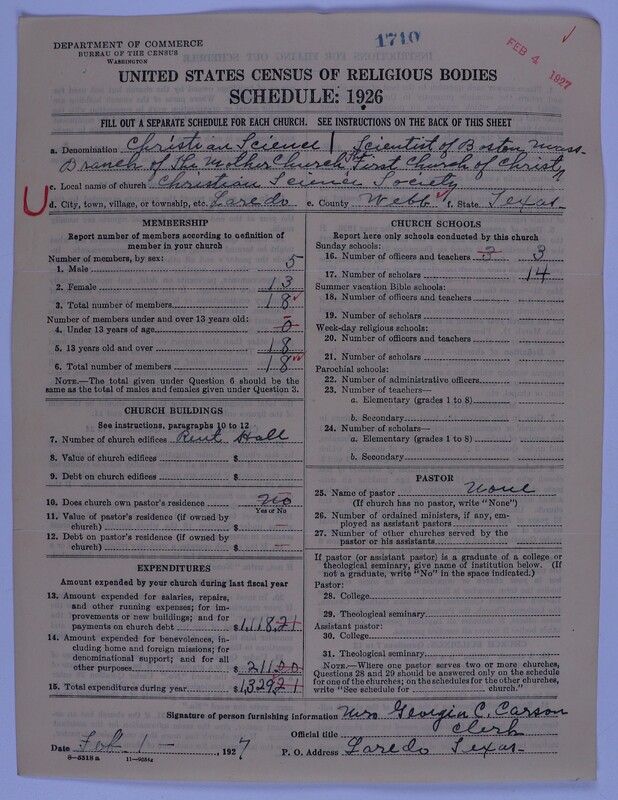 DEPARTMENT OF COMMERCE
BUREAU OF THE CENSUS
WASHINGTON
1710
FEB 4 1927
UNITED STATES CENSUS OF RELIGIOUS BODIES
SCHEDULE: 1926
FILL OUT A SEPARATE SCHEDULE FOR EACH CHURCH. SEE INSTRUCTIONS ON THE BACK OF THIS SHEET
a. Denomination Christian Science | Scientist of Boston Mass.
Branch of The Mother Church The First Church of Christ,
c. Local name of church Christian Science Society
d. City, town, village, or township, etc. Laredo e. County Webb f. State Texas
MEMBERSHIP
Report number of members according to definition of member in your church
Number of members, by sex:
1. Male 5
2. Female 13
3. Total number of members 18
Number of members under and over 13 years old:
4. Under 13 years of age 0
5. 13 years old and over 18
6. Total number of members 18
NOTE.—The total given under Question 6 should be
same as the total of males and females given under Question 3.
CHURCH BUILDINGS
See instructions, paragraphs 10 to 12
7. Number of church edifices Rent Hall
8. Value of church edifices $
9. Debt on church edifices $
10. Does church own pastor's residence No
Yes or No
11. Value of pastor's residence (if owned by
church) $ —
12. Debt on pastor's residence (if owned by
church) $ —
EXPENDITURES
Amount expended by your church during last fiscal year
13. Amount expended for salaries, repairs,
and other running expenses; for im-
provements or new buildings; and for
payments on church debt $1,118.21
14. Amount expended for benevolences, in-
cluding home and foreign missions; for
denominational support; and for all
other purposes $ 211.00
15. Total expenditures during year $1,329.21
CHURCH SCHOOLS
Report here only schools conducted by this church
Sunday schools:
16. Number of officers and teachers 3 3
17. Number of scholars 14
Summer vacation Bible schools:
18. Number of officers and teachers
19. Number of scholars
Week-day religious schools:
20. Number of officers and teachers
21. Number of scholars
Parochial schools:
22. Number of administrative officers
23. Number of teachers—
a. Elementary (grades 1 to 8)
b. Secondary
24. Number of scholars—
a. Elementary (grades 1 to 8)
b. Secondary
PASTOR
25. Name of pastor None
(If church has no pastor, write "None")
26. Number of ordained ministers, if any, em-
ployed as assistant pastors
27. Number of other churches served by the
pastor or his assistants
If pastor (or assistant pastor) is a graduate of a college or
theological seminary, give name of institution below. (If
not a graduate, write "No" in the space indicated.)
Pastor:
28. College
29. Theological seminary
Assistant pastor:
30. College
31. Theological seminary
NOTE.—Where one pastor serves two or more churches,
Questions 28 and 29 should be answered only on the schedule
for one of the churches; on the schedules for the other churches,
write "See schedule for church."
Signature of person furnishing information Mrs Georgin C. Carson
Official title Clerk
Date Feb. 1 — , 1927 P. O. Address Laredo Texas
6—5518 a 11—9034